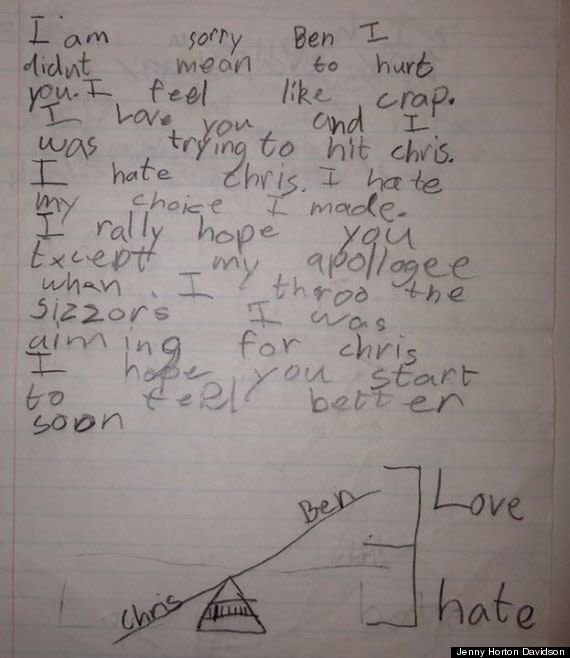 I am sorry Ben I
didnt mean to hurt
you. I feel like crap.
I Love you and I
was trying to hit chris.
I hate chris. I hate
my choice I made.
I rally hope you
Exceptt my apollogee
when I throo the
sizzors I was
aiming for chris
I hope you start
to feel better
soon
Ben
Love
Chris
hate
Jenny Horton Davidson